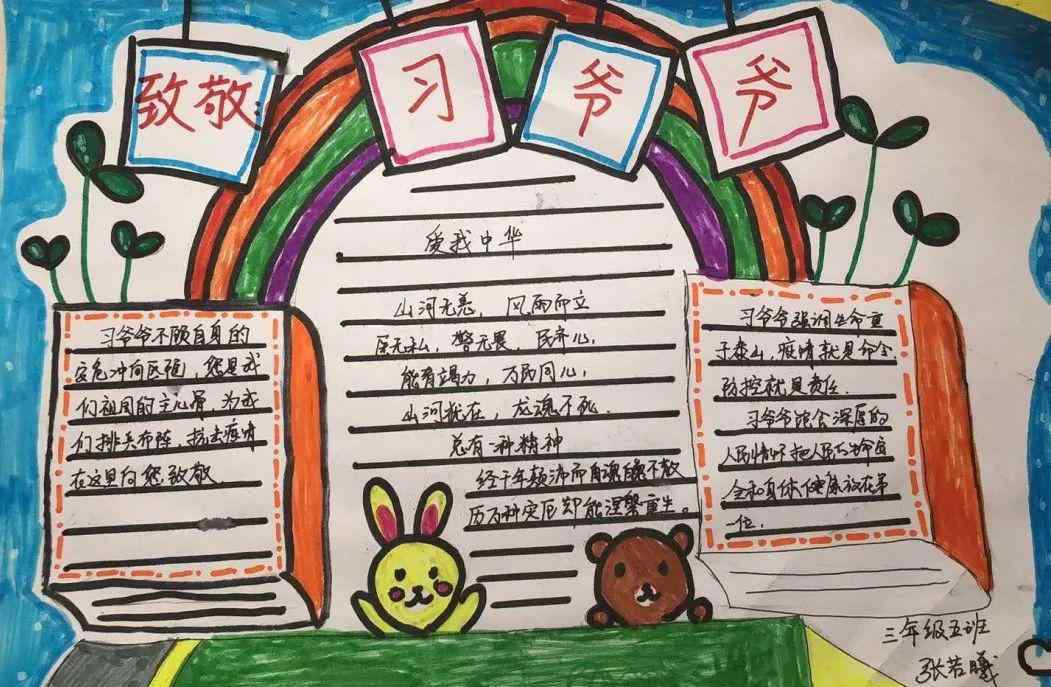 致敬
习爷爷
习爷爷不顾自身的
安危冲向医疆，您是我
们祖国的主心骨，为我
们排兵布阵，抗击疫情
在这里向您致敬
爱我中华
山河无恙，风雨而立
医无私，警无畏，民齐心，
能者竭力，万民同心，
山河犹在，龙魂不死
总有一种精神
经千年颠沛而自魂魄不散
历万种灾厄却能涅槃重生。
习爷爷强调生命重
于泰山，疫情就是命令
防控就是责任
习爷爷饱含深厚的
人民情怀把人民生命
全和身体健康放在第
一位.
三年级五班
张若曦